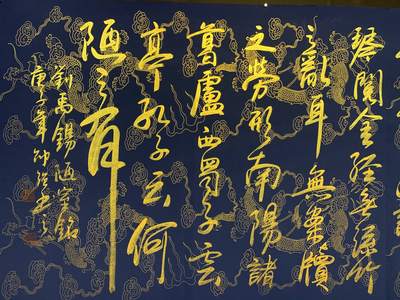 琴閱金經無絲竹
之亂耳無案牘
之勞形南陽諸
葛廬西蜀子雲
亭孔子云何
陋之有
劉禹錫陋室銘
庚子年